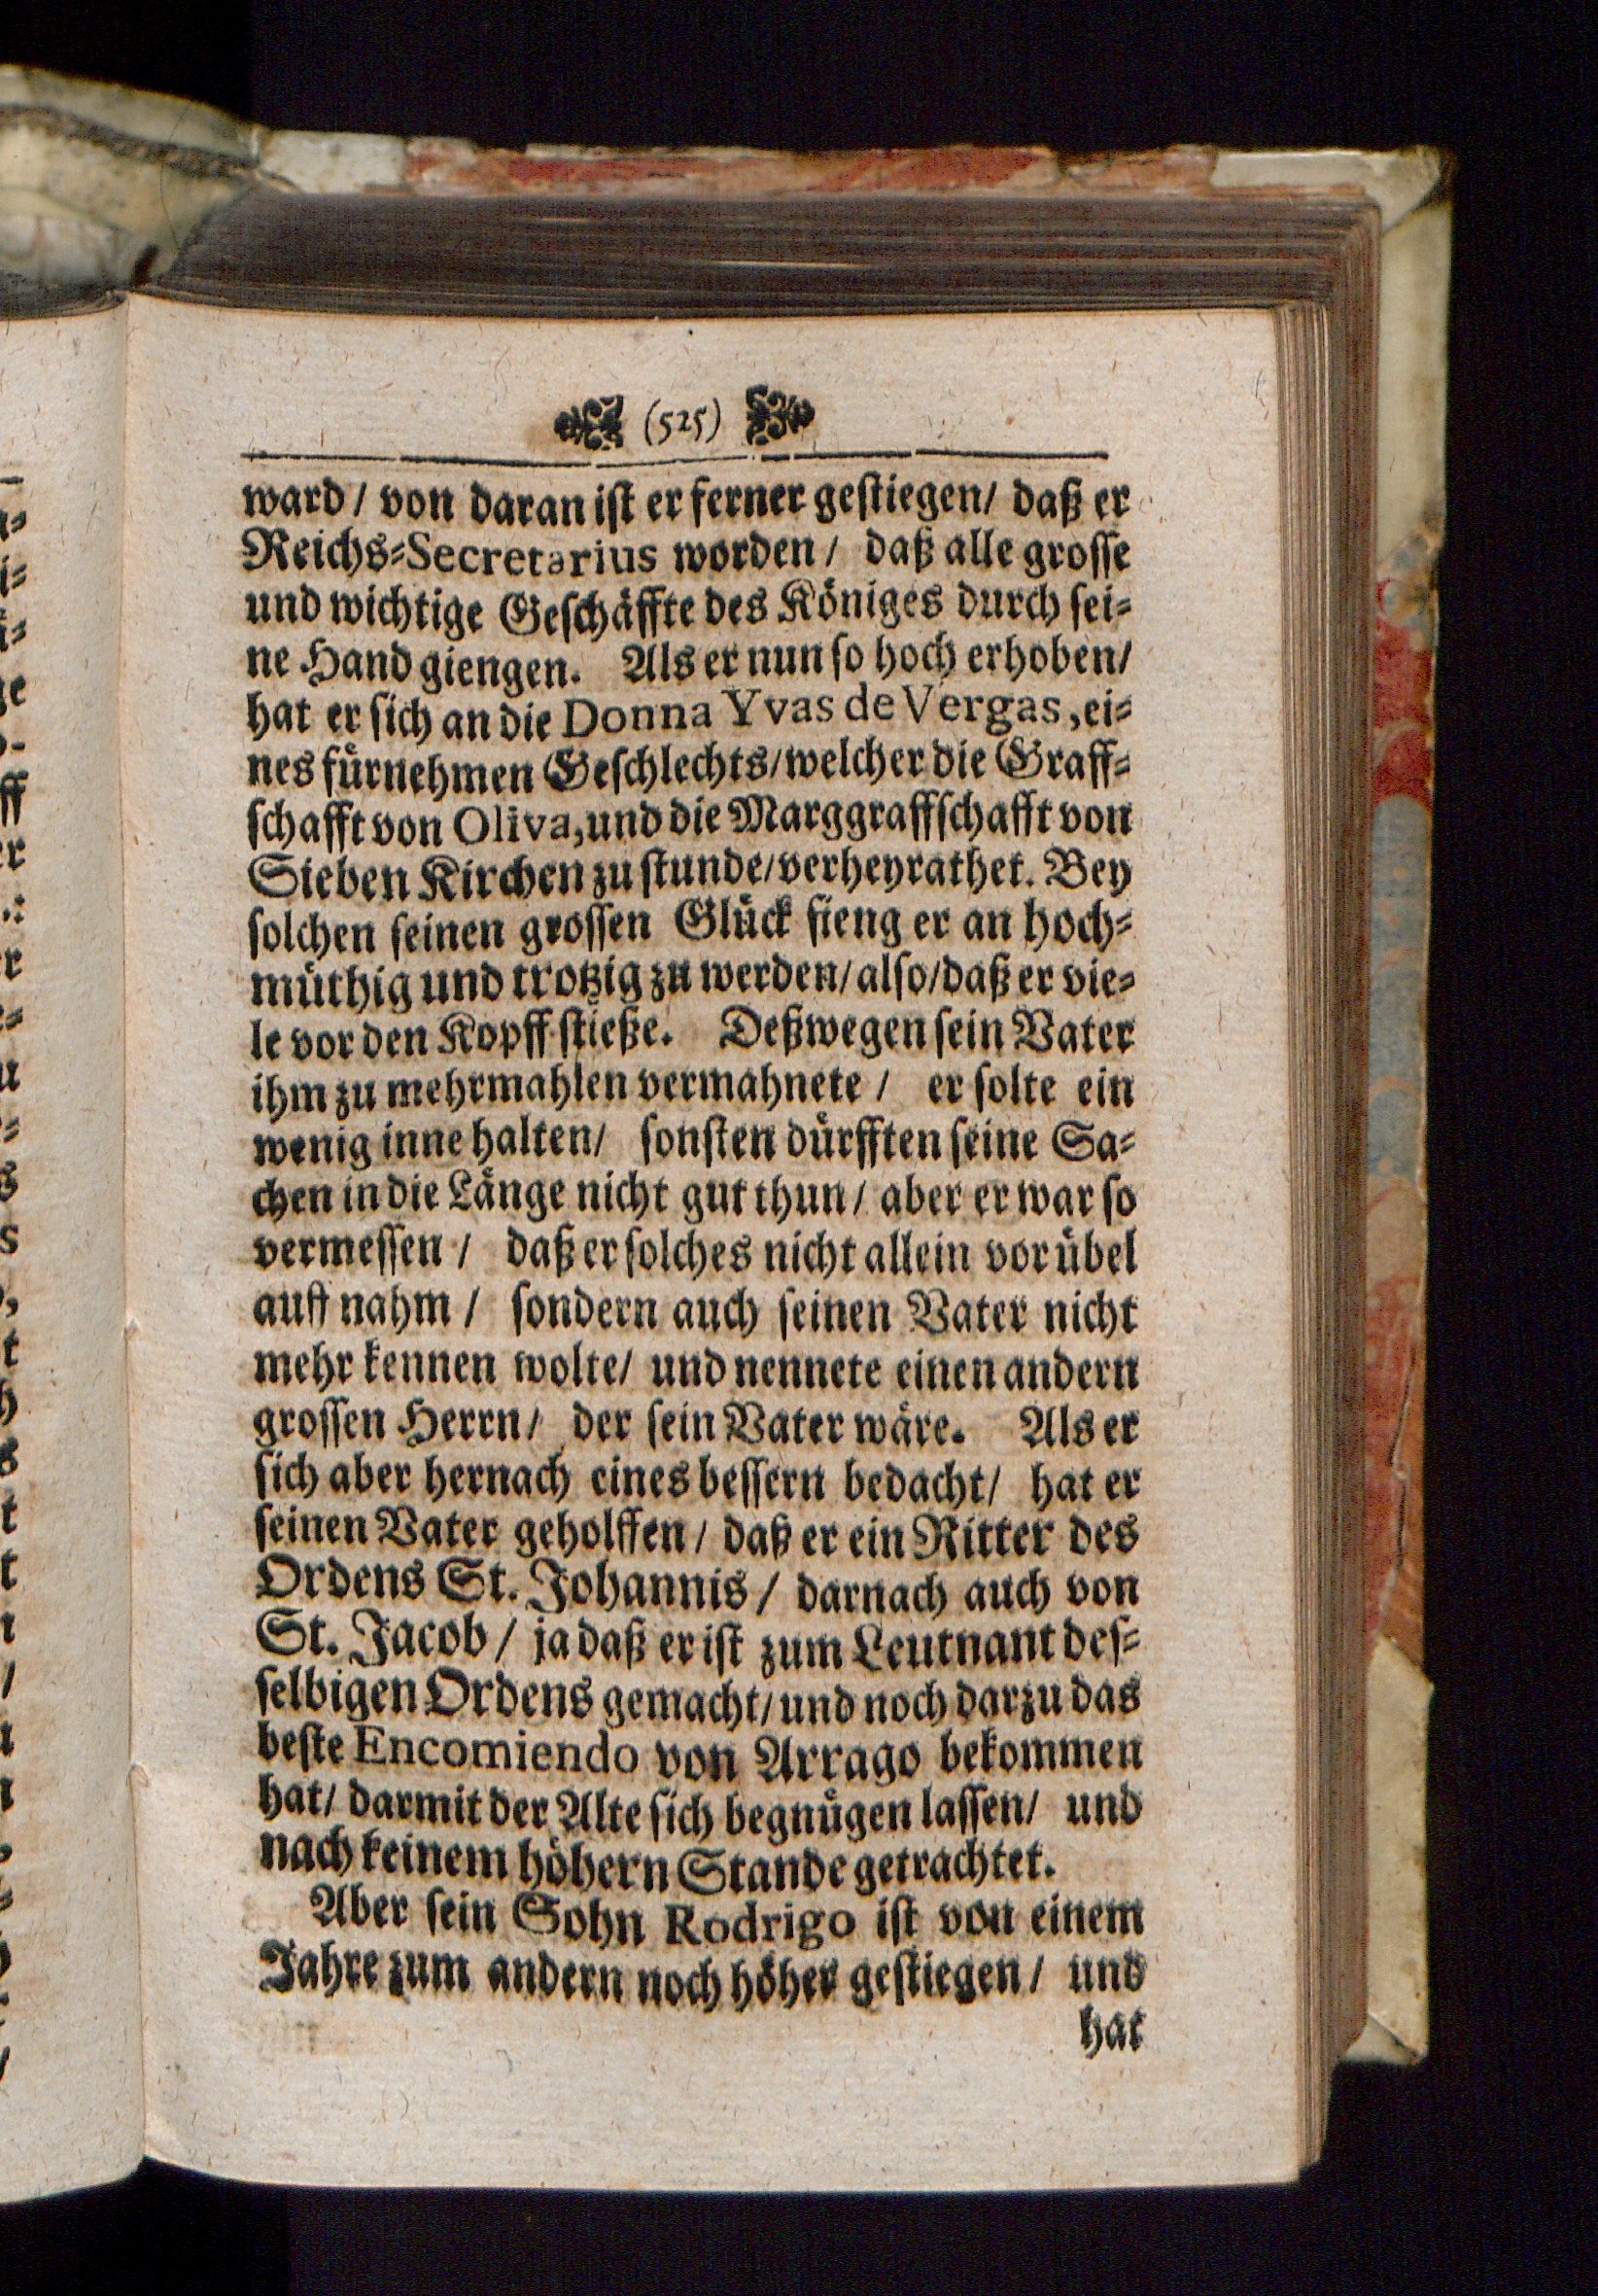 (525)
ward / von daran ist er ferner gestiegen / daß er
Reichs=Secretarius worden / daß alle grosse
und wichtige Geschäffte des Königes durch sei=
ne Hand giengen. Als er nun so hoch erhoben /
hat er sich an die Donna Yvas de Vergas, ei=
nes fürnehmen Geschlechts / welcher die Graff=
schafft von Oliva, und die Marggraffschafft von
Sieben Kirchen zu stunde / verheyrathet. Bey
solchen seinen grossen Glück fieng er an hoch=
müthig und trotzig zu werden / also / daß er vie=
le vor den Kopff stieße. Deßwegen sein Vater
ihm zu mehrmahlen vermahnete / er solte ein
wenig inne halten / sonsten dürfften seine Sa=
chen in die Länge nicht gut thun / aber er war so
vermessen / daß er solches nicht allein vor übel
auff nahm / sondern auch seinen Vater nicht
mehr kennen wolte / und nennete einen andern
grossen Herrn / der sein Vater wäre. Als er
sich aber hernach eines bessern bedacht / hat er
seinen Vater geholffen / daß er ein Ritter des
Ordens St. Johannis / darnach auch von
St. Jacob / ja daß er ist zum Leutnant des=
selbigen Ordens gemacht / und noch darzu das
beste Encomiendo von Arrago bekommen
hat / darmit der Alte sich begnügen lassen / und
nach keinem höhern Stande getrachtet.
Aber sein Sohn Rodrigo ist von einem
Jahre zum andern noch höher gestiegen / und
hat